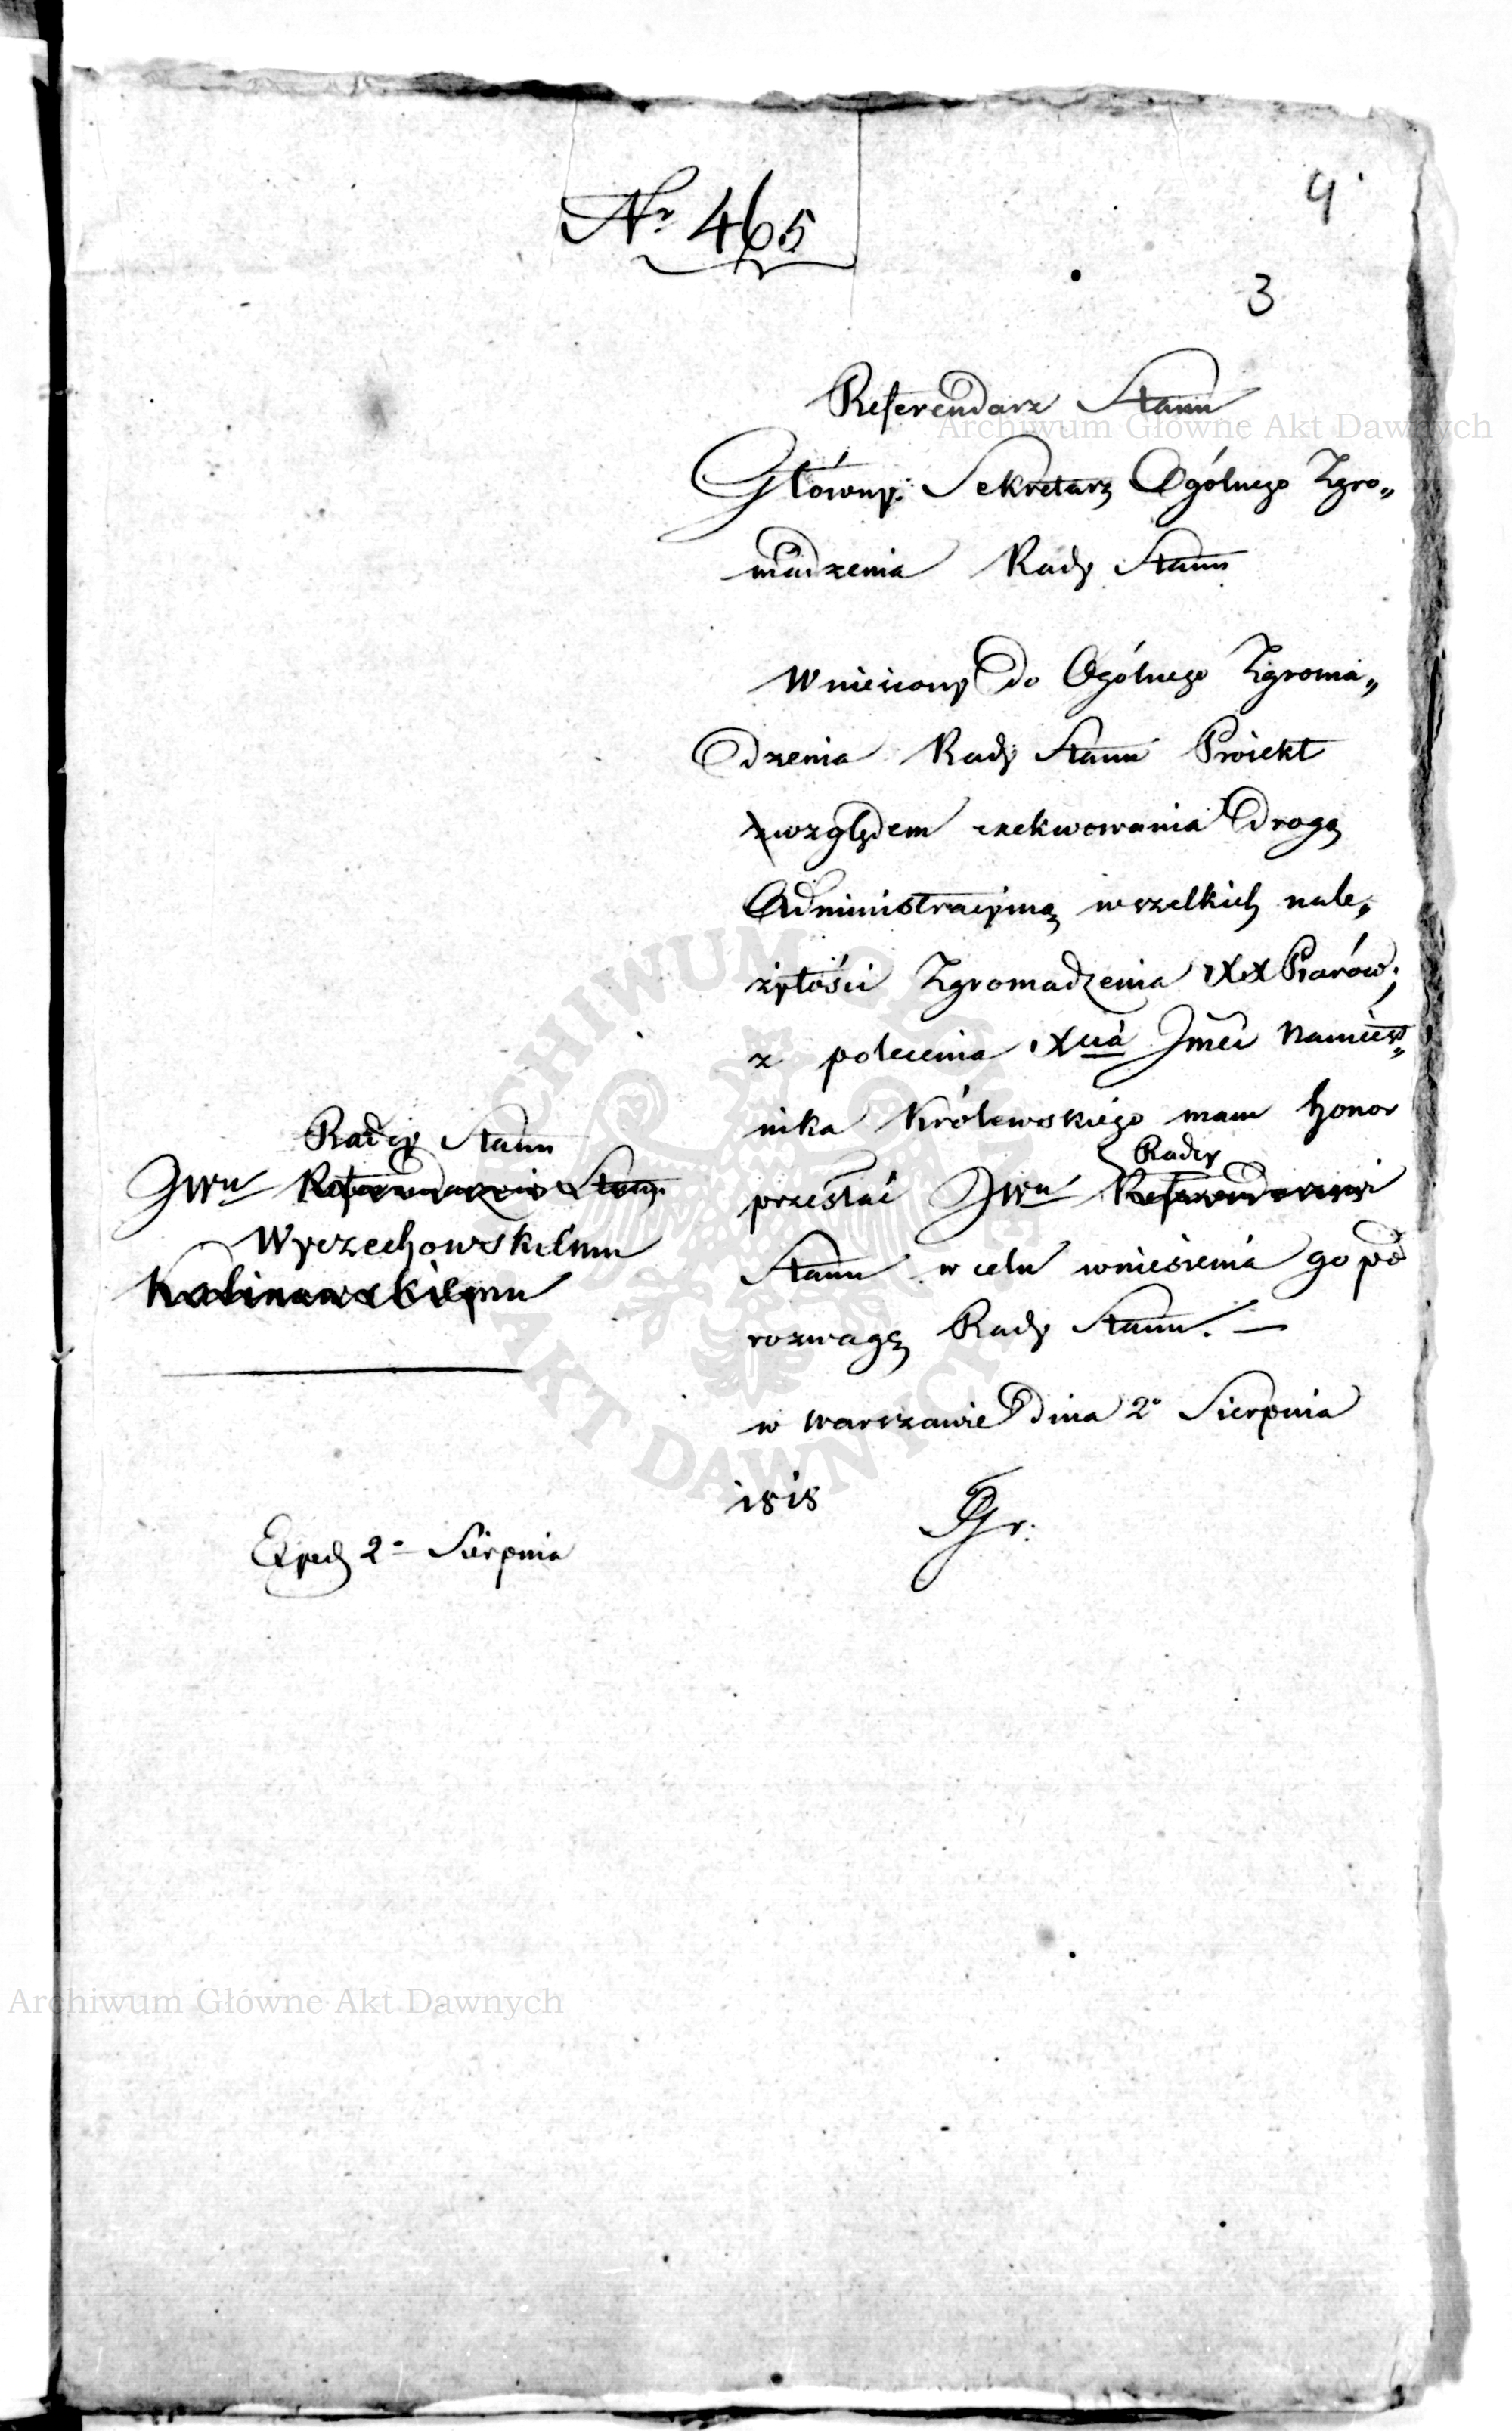 Nr 465
4
3
Referendarz Stanu
Główny Sekretarz Ogólnego Zgro„
madzenia Rady Stanu
Wniesiony do Ogólnego Zgroma„
dzenia Rady Stanu Proiekt
względem exekwowania drogą
Administracyiną wszelkich nale„
żytości Zgromadzenia XX Piarów,
z polecenia Xcia Jmci Namiest„
nika Królewskiego mam honor
Radcy
przesłać JWu Referendarzowi
Stanu w celu wniesienia go pod
rozwagę Rady Stanu. —
w Warszawie dnia 2o Sierpnia
1818
Gr:
Radcy Stanu
JWu Referendarzowi Stanu
Wyczechowskiemu
Kalinowskiemu
Exped 2o Sierpnia
Archiwum Główne Akt Dawnych
ARCHIWUM GŁÓWNE AKT DAWNYCH
Archiwum Główne Akt Dawnych